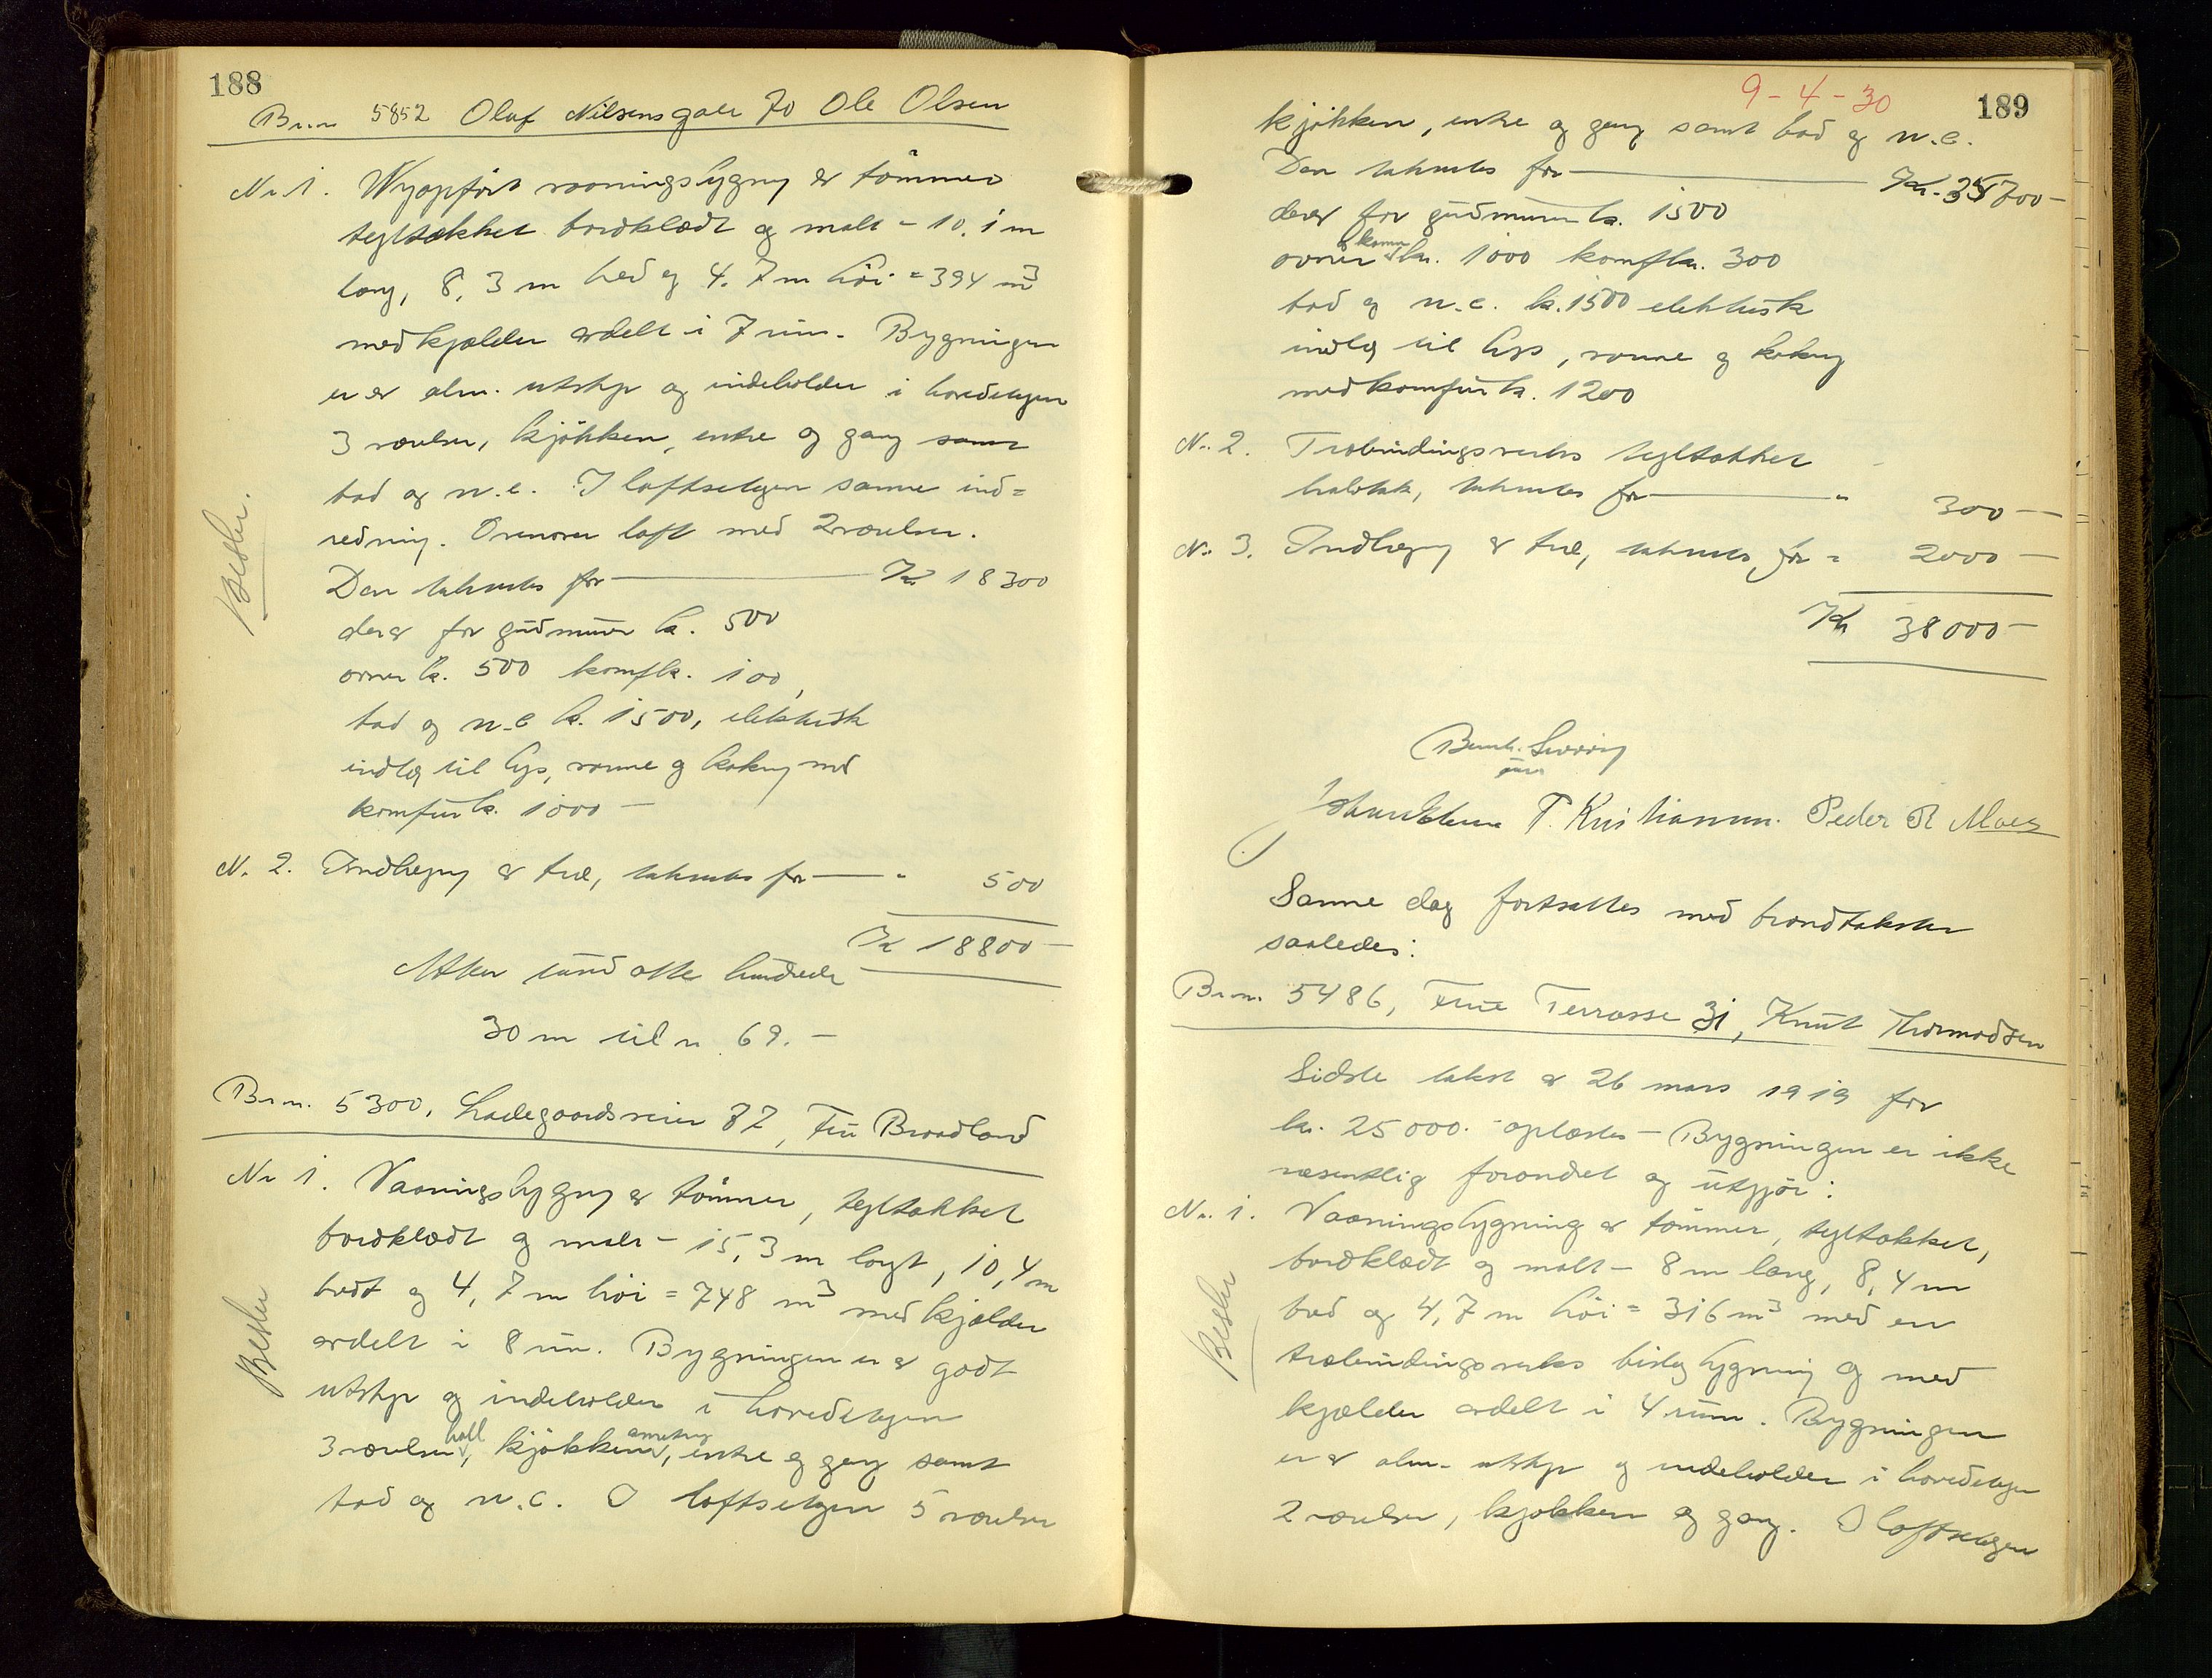 188
Br.nr 5852 Olaf Nilsensgate 70 Ole Olsen
Nr 1. Nyopfört vaaningsbygng av tömmer
tegltækket bordklædt og malt - 10.1 m
lang, 8,3 m bred og 4.7 m höi = 394 m3
med kjælder avdelt i 7 rum. Bygningen
er av alm. utstyr og indeholder i hovedetagen
3 værelser, kjökken, entre og gang samt
bad og w.c. I loftsetagen samme ind=
redning. Ovenover loft med 2 værelser.
Den takseres for Kr 18300
derav for grudmurer kr. 500
ovner kr. 500 komf kr. 100,
bad og w.c kr. 1500, elektrisk
indlæg til lys, varme og kokng med
komfur kr. 1000 -
Nr. 2. Indhegng av træ, takseres for - " 500
Kr 18800 -
Atten tusind otte hundrede
30 m til n 69. -
Br.nr. 5300. Ladegaardsveien 87, Fru Braadland
Nr 1. Vaaningsbygng av tömmer, tegltækket
bordklædt og malt - 15,3 m langt, 10,4 m
bredt og 4,7 m höi = 748 m3 med kjælder
avdelt i 8 rum. Bygningen er av godt
utstyr og indeholder i hovedetagen
3 værelser, hall, kjökken, anretng, entre og gang samt
bad og w.c. I loftsetagen 5 værelser
Besikt.
Besikt
9-4-30
189
kjökken, entre og gang samt bad og w.c.
Den takseres for Kr. 35700 -
derav for grudmurer kr. 1500
ovner kr. 1000 komf kr. 300
bad og w.c. kr. 1500 elektrisk
indlæg til lys, varme og kokng
med komfur kr. 1200
Nr. 2. Træbindingsverks tegltækket
takseres for - " 300 -
Nr. 3. Indhegng av træ, takseres for " 2000 -
Kr 38000 -
T. Kristiansen. Peder R Moes
Samme dag fortsattes med brandtakster
saaledes:
Br.nr. 5486, Terrasse 31, Knut Thormodsen
Sidste takst av 26 mars 1919 for
kr. 25000. oplæstes - Bygningen er ikke
væsentlig forandret og utgjör:
Nr. 1. Vaaningsbygning av tömmer, tegltækket,
bordklædt og malt - 8 m lang, 8,4 m
bred og 4,7 m höi = 316 m3 med en
træbindingsverks bislagbygning og med
kjælder avdelt i 4 rum. Bygningen
er av alm. utstyr og indeholder i hovedetagen
2 værelser, kjökken og gang. I loftsetagen
Besikt